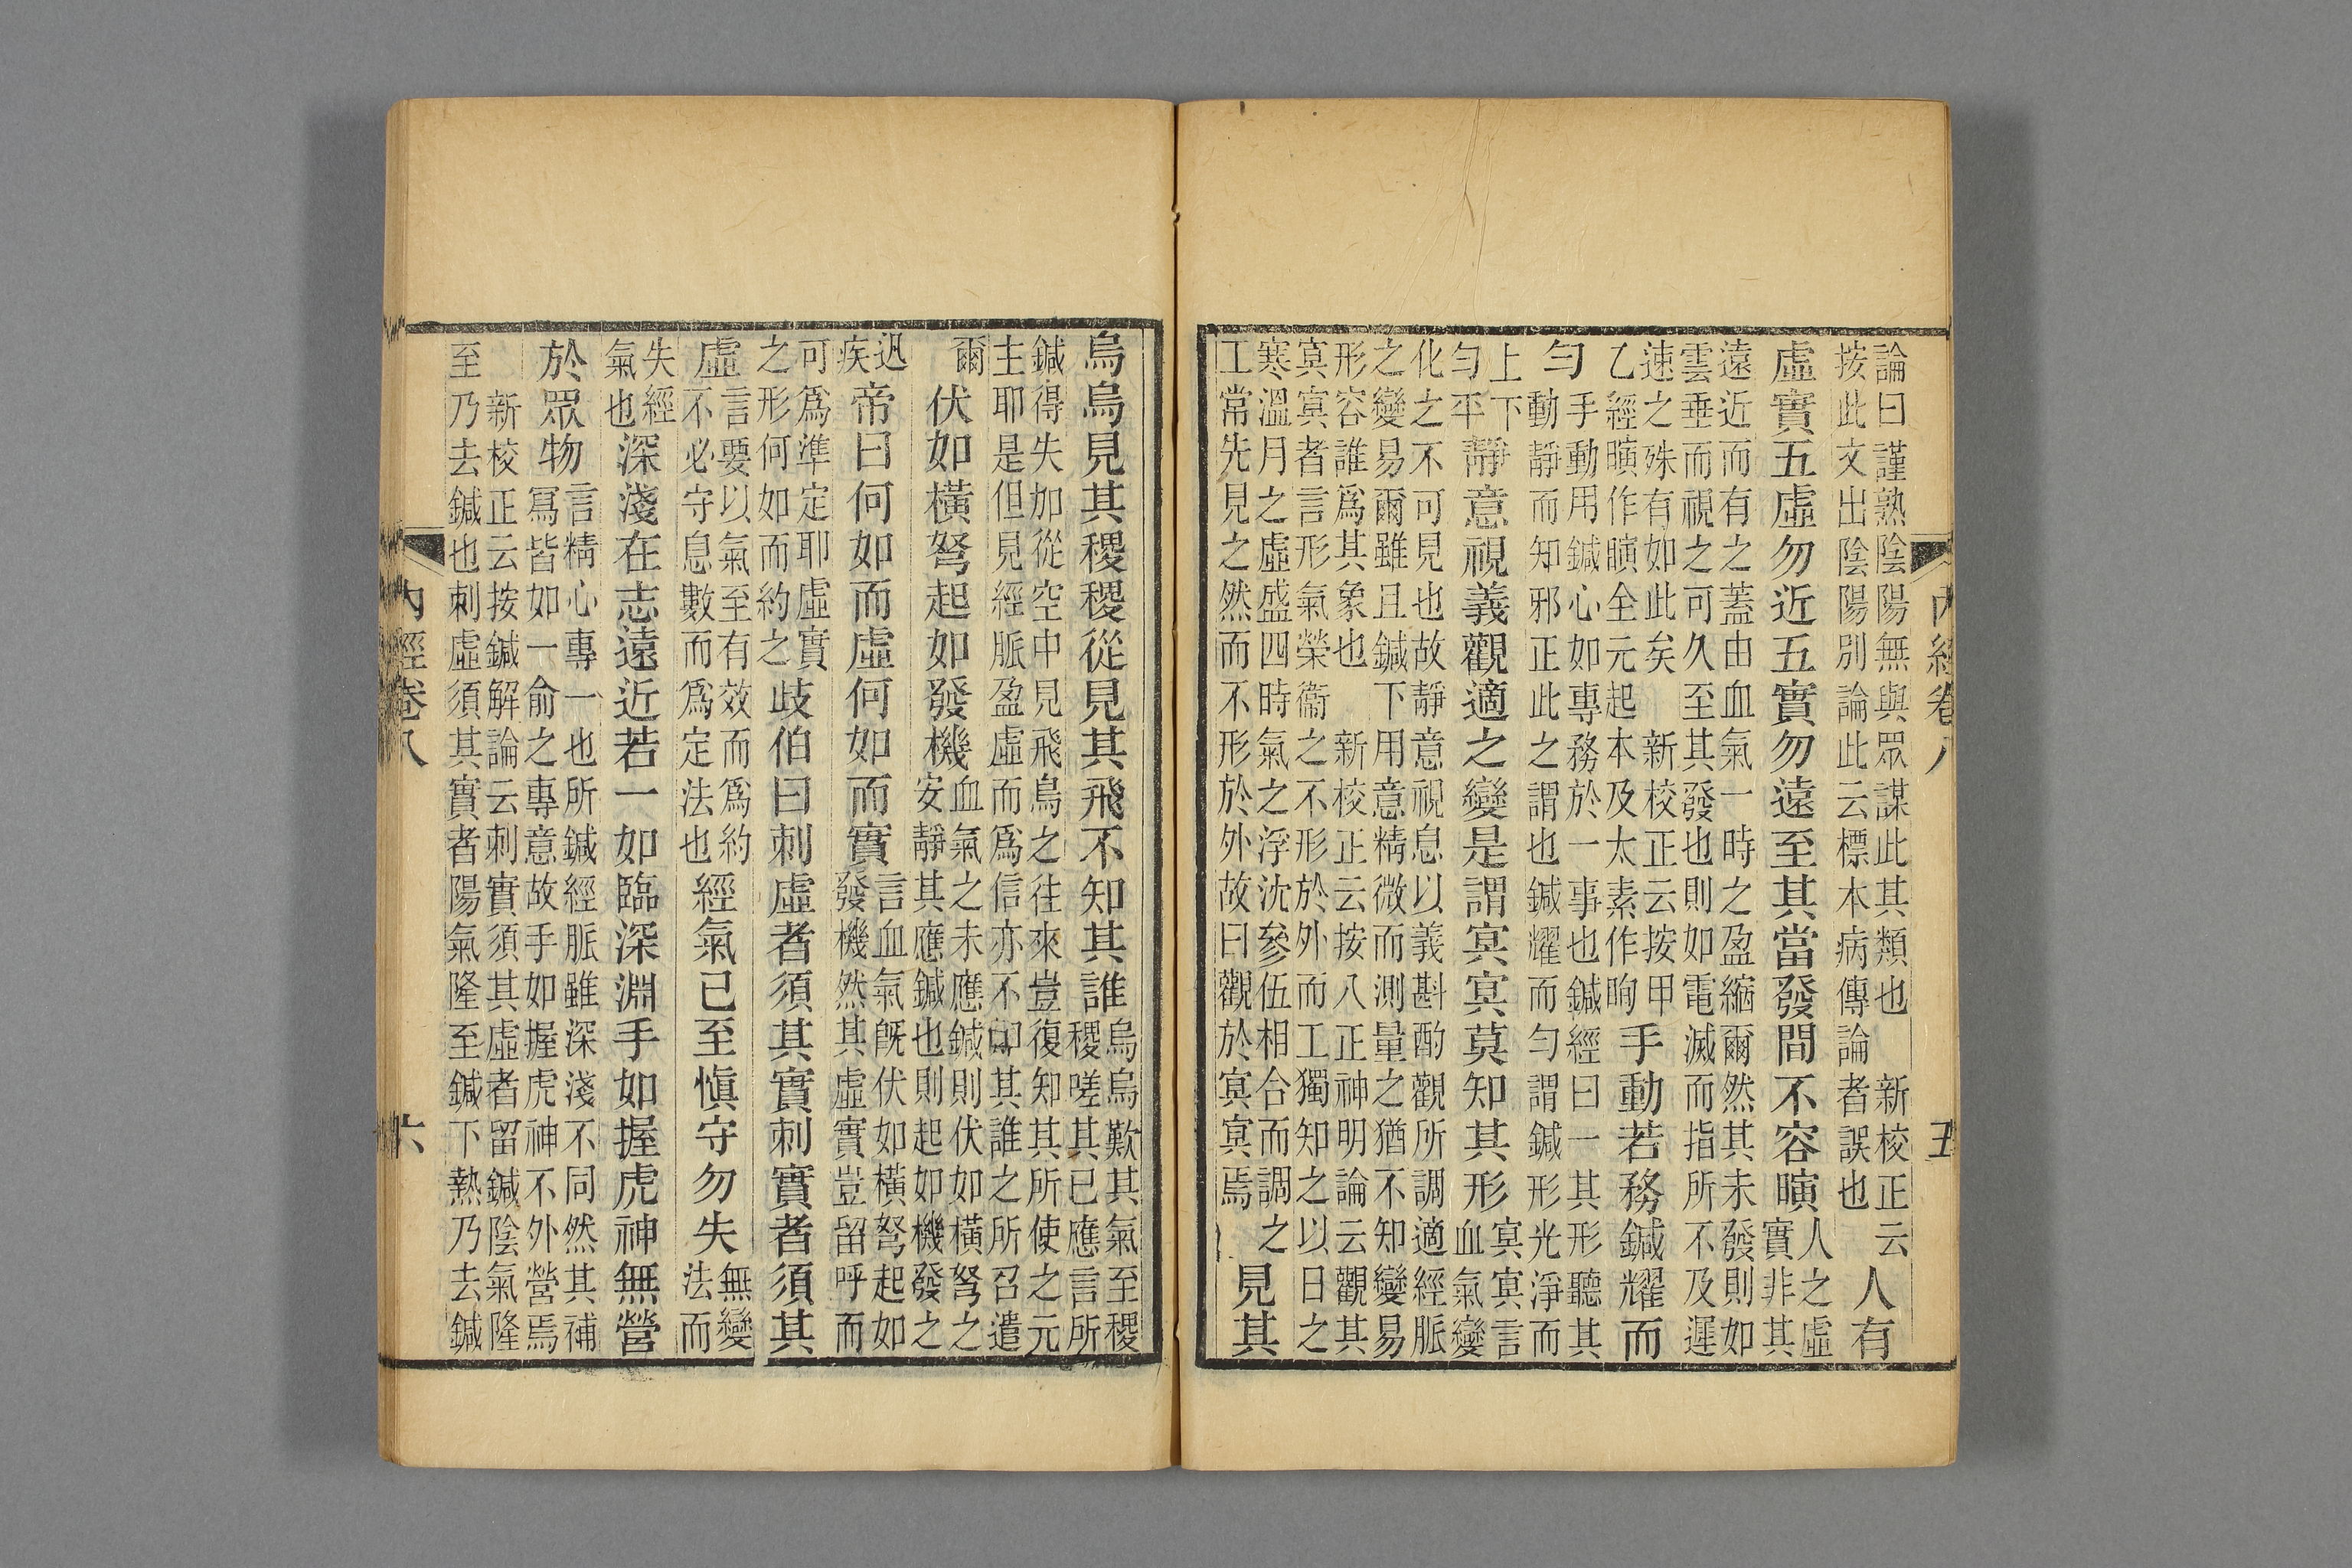 內經卷八 五
論曰謹熟陰陽無與眾謀此其類也　新校正云
按此文出陰陽別論此云標本病傳論者誤也
人有
虛實五虛勿近五實勿遠至其當發間不容瞚
人之虛
實非其
遠近而有之蓋由血氣一時之盈縮爾然其未發則如
雲垂而視之可久至其發也則如電滅而指所不及遲
速之殊有如此矣　新校正云按甲
乙經瞚作瞋全元起本及太素作眴
手動若務鍼耀而
勻
手動用鍼心如專務於一事也鍼經曰一其形聽其
動靜而知邪正此之謂也鍼耀而勻謂鍼形光淨而
上下
勻平
靜意視義觀適之變是謂冥冥莫知其形
冥冥言
血氣變
化之不可見也故靜意視息以義斟酌觀所調適經脈
之變易爾雖且鍼下用意精微而測量之猶不知變易
形容誰爲其象也　新校正云按八正神明論云觀其
冥冥者言形氣榮衞之不形於外而工獨知之以日之
寒溫月之虛盛四時氣之浮沈參伍相合而調之
工常先見之然而不形於外故曰觀於冥冥焉
見其
烏烏見其稷稷從見其飛不知其誰
烏烏歎其氣至稷
稷嗟其已應言所
鍼得失加從空中見飛鳥之往來豈復知其所使之元
主耶是但見經脈盈虛而爲信亦不卽其誰之所召遣
爾
伏如橫弩起如發機
血氣之未應鍼則伏如橫弩之
安靜其應鍼也則起如機發之
迅
疾
帝曰何如而虛何如而實
言血氣旣伏如橫弩起如
發機然其虛實豈留呼而
可爲準定耶虛實
之形何如而約之
歧伯曰刺虛者須其實刺實者須其
虛
言要以氣至有效而爲約
不必守息數而爲定法也
經氣已至愼守勿失
無變
法而
失經
氣也
深淺在志遠近若一如臨深淵手如握虎神無營
於眾物
言精心專一也所鍼經脈雖深淺不同然其補
冩皆如一俞之專意故手如握虎神不外營焉
新校正云按鍼解論云刺實須其虛者留鍼陰氣隆
至乃去鍼也刺虛須其實者陽氣隆至鍼下熱乃去鍼
內經卷八 六